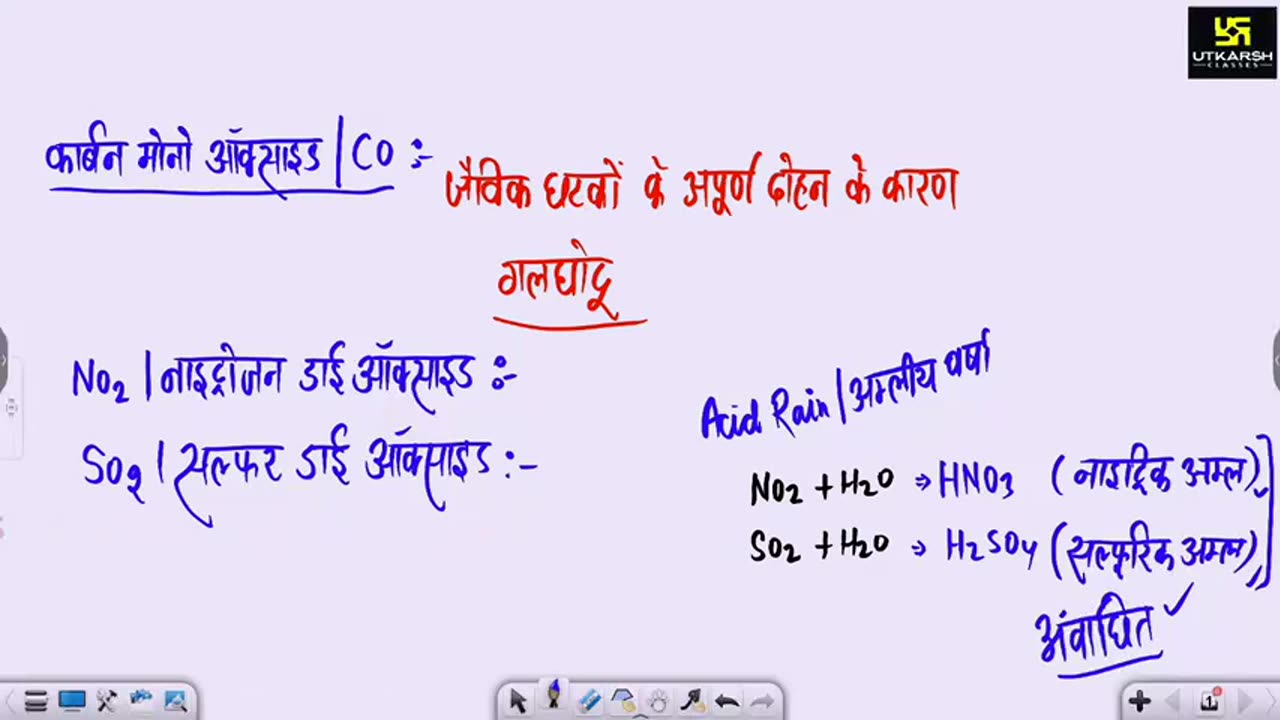 UTKARSH
CLASSES
कार्बन मोनो ऑक्साइड | CO :-
जैविक घटकों के अपूर्ण दोहन के कारण
गलघोटू
NO2 | नाइट्रोजन डाई ऑक्साइड :-
SO2 | सल्फर डाई ऑक्साइड :-
Acid Rain | अम्लीय वर्षा
NO2 + H2O → HNO3 (नाइट्रिक अम्ल)
SO2 + H2O → H2SO4 (सल्फूरिक अम्ल)
अंवाछित ✓
1